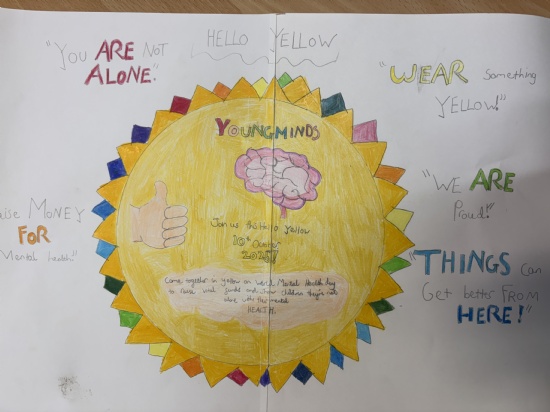 HELLO YELLOW
"YOU ARE NOT
ALONE."
"WEAR something
YELLOW!"
YOUNGMINDS
"WE ARE
Proud!"
Join us this Hello Yellow
10th October
2025!
MONEY
FOR
Mental health"
Come together in yellow on World Mental Health Day
to raise vital funds and show children they're not
alone with their mental
HEALTH.
"THINGS can
Get better FROM
HERE!"